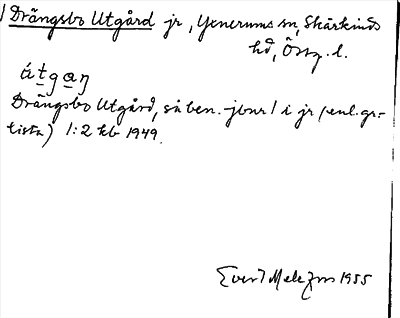 Drängsbo Utgård jr, Yxnerums sn, Skärkinds
hd, Östg. l.
átgaŋ
Drängsbo Utgård, så ben. jbnr 1 i jr (enl. gr=
lista) 1:2 kb 1949.
Evert Melefors 1955